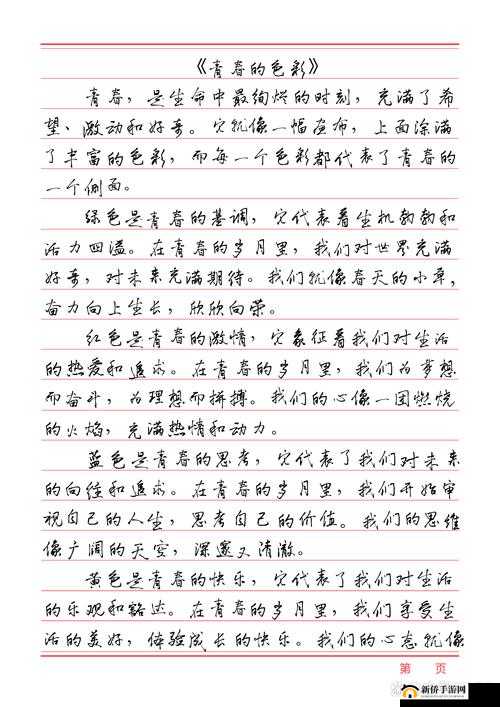 《青春的色彩》
青春，是生命中最绚烂的时刻，充满了希
望、激动和好奇。它就像一幅画布，上面涂满
了丰富的色彩，而每一个色彩都代表了青春的
一个侧面。
绿色是青春的基调，它代表着生机勃勃和
活力四溢。在青春的岁月里，我们对世界充满
好奇，对未来充满期待。我们就像春天的小草，
奋力向上生长，欣欣向荣。
红色是青春的激情，它象征着我们对生活
的热爱和追求。在青春的岁月里，我们为梦想
而奋斗，为理想而拼搏。我们的心像一团燃烧
的火焰，充满热情和动力。
蓝色是青春的思考，它代表了我们对未来
的向往和追求。在青春的岁月里，我们开始审
视自己的人生，思考自己的价值。我们的思维
像广阔的天空，深邃又清澈。
黄色是青春的快乐，它代表了我们对生活
的乐观和豁达。在青春的岁月里，我们享受生
活的美好，体验成长的快乐。我们的心态就像
第 页
新侨手游网